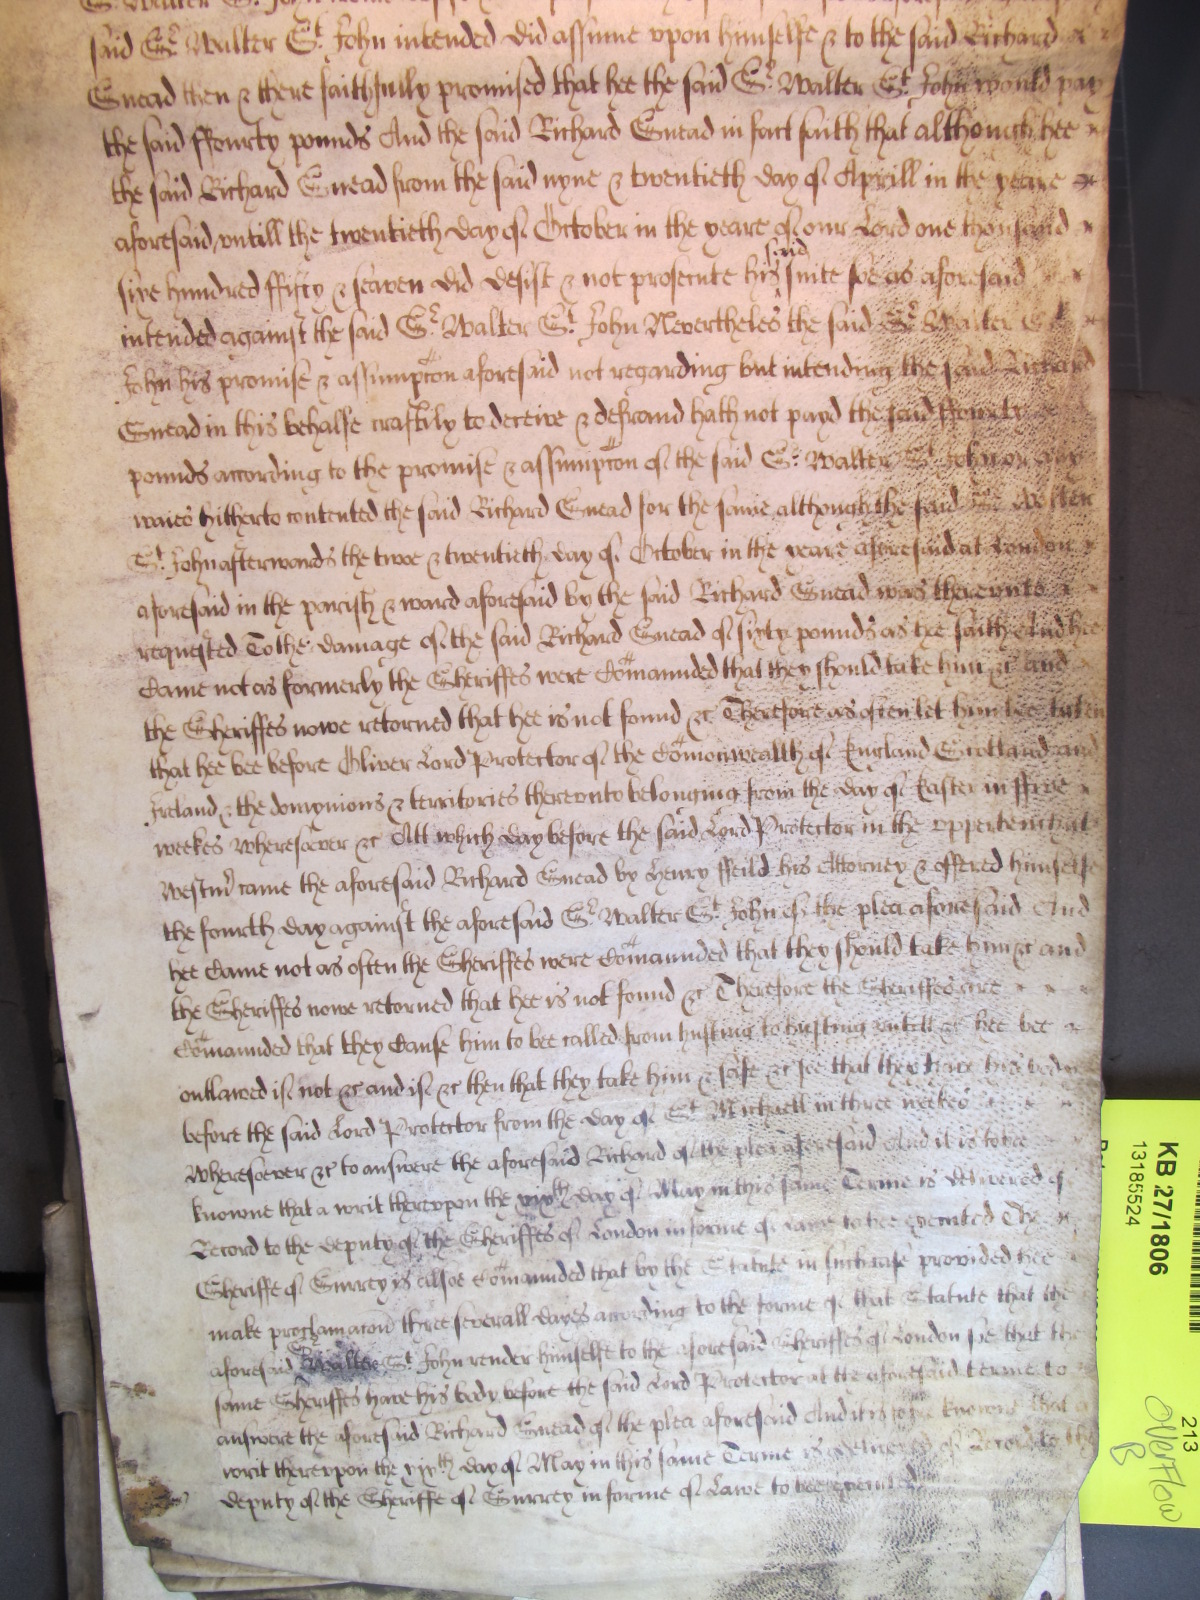 said Sr. Walter St. John intended did assume upon himselfe & to the said Richard
Snead then & there faithfully promised that hee the said Sr. Walter St. John would pay
the said ffourty pounds And the said Richard Snead in fact saith that although hee
the said Richard Snead from the said nyne & twentieth day of Aprill in the yeare
aforesaid untill the twentieth day of October in the yeare of our Lord one thousand
said
sixe hundred ffifty & seaven did desist & not prosecute his suite soe as aforesaid
intended against the said Sr. Walter St. John Nevertheles the said Sr. Walter St.
John his promise & assumpcon aforesaid not regarding but intending the said Richard
Snead in this behalfe craftily to deceive & defraud hath not payd the said ffourty
pounds according to the promise & assumpcon of the said Sr. Walter St. John or any
waies hitherto contented the said Richard Snead for the same although the said Sr. Walter
St. John afterwards the twoe & twentieth day of October in the yeare aforesaid at London
aforesaid in the parish & ward aforesaid by the said Richard Snead was thereunto
requested To the damage of the said Richard Snead of sixty pounds as hee saith And hee
Came not as formerly the Sheriffes were Comaunded that they should take him &c and
the Sheriffes nowe retorned that hee is not found &c Therefore as often let him bee taken
that hee bee before Oliver Lord Protector of the Comonwealth of England Scotland and
Ireland & the dominyions & territories thereunto belonging from the day of Easter in ffive
weekes wheresoever &c Att which day before the said Lord Protector in the upper bench at
Westmr came the aforesaid Richard Snead by Henry ffeild his Attorney & offered himselfe
the fourth day against the aforesaid Sr. Walter St. John of the plea aforesaid And
hee Came not as often the Sheriffes were Comaunded that they should take him &c and
the Sheriffes nowe retorned that hee is not found &c Therefore the Sheriffes are
Comaunded that they Cause him to bee called from husting to husting untill &c hee bee
outlawed if not &c and if &c then that they take him & safe &c soe that they have his body
before the said Lord Protector from the day of St. Michaell in three weekes
wheresoever &c to answere the aforesaid Richard of the plea aforesaid And it is to bee
knowne that a writ thereupon the day of May in this same Terme is delivered of
Record to the deputy of the Sheriffes of London in forme of Lawe to bee executed The
Sheriffe of Surrey is alsoe Comaunded that by the Statute in such case provided hee
make proclamacon three severall dayes according to the forme of that Statute that the
aforesaid Sr. Walter St. John render himselfe to the aforesaid Sheriffes of London soe that the
same Sheriffes have his body before the said Lord Protector at the aforesaid terme to
answere the aforesaid Richard Snead of the plea aforesaid And it is to bee knowne that a
writ thereupon the day of May in this same Terme is delivered of Record to the
deputy of the Sheriffe of Surrey in forme of Lawe to bee executed
KB 27/1806
13185524
213
Overflow
B